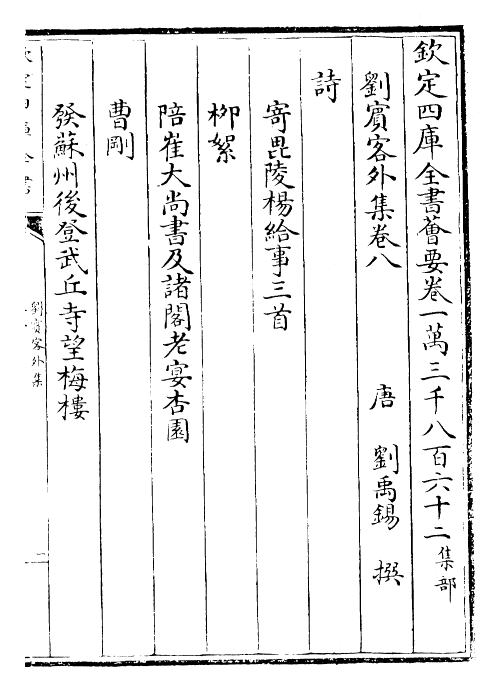 欽定四庫全書薈要卷一萬三千八百六十二集部
劉賓客外集卷八
唐 劉禹錫 撰
詩
寄毘陵楊給事三首
柳絮
陪崔大尚書及諸閣老宴杏園
曹剛
發蘇州後登武丘寺望梅樓
劉賓客外集